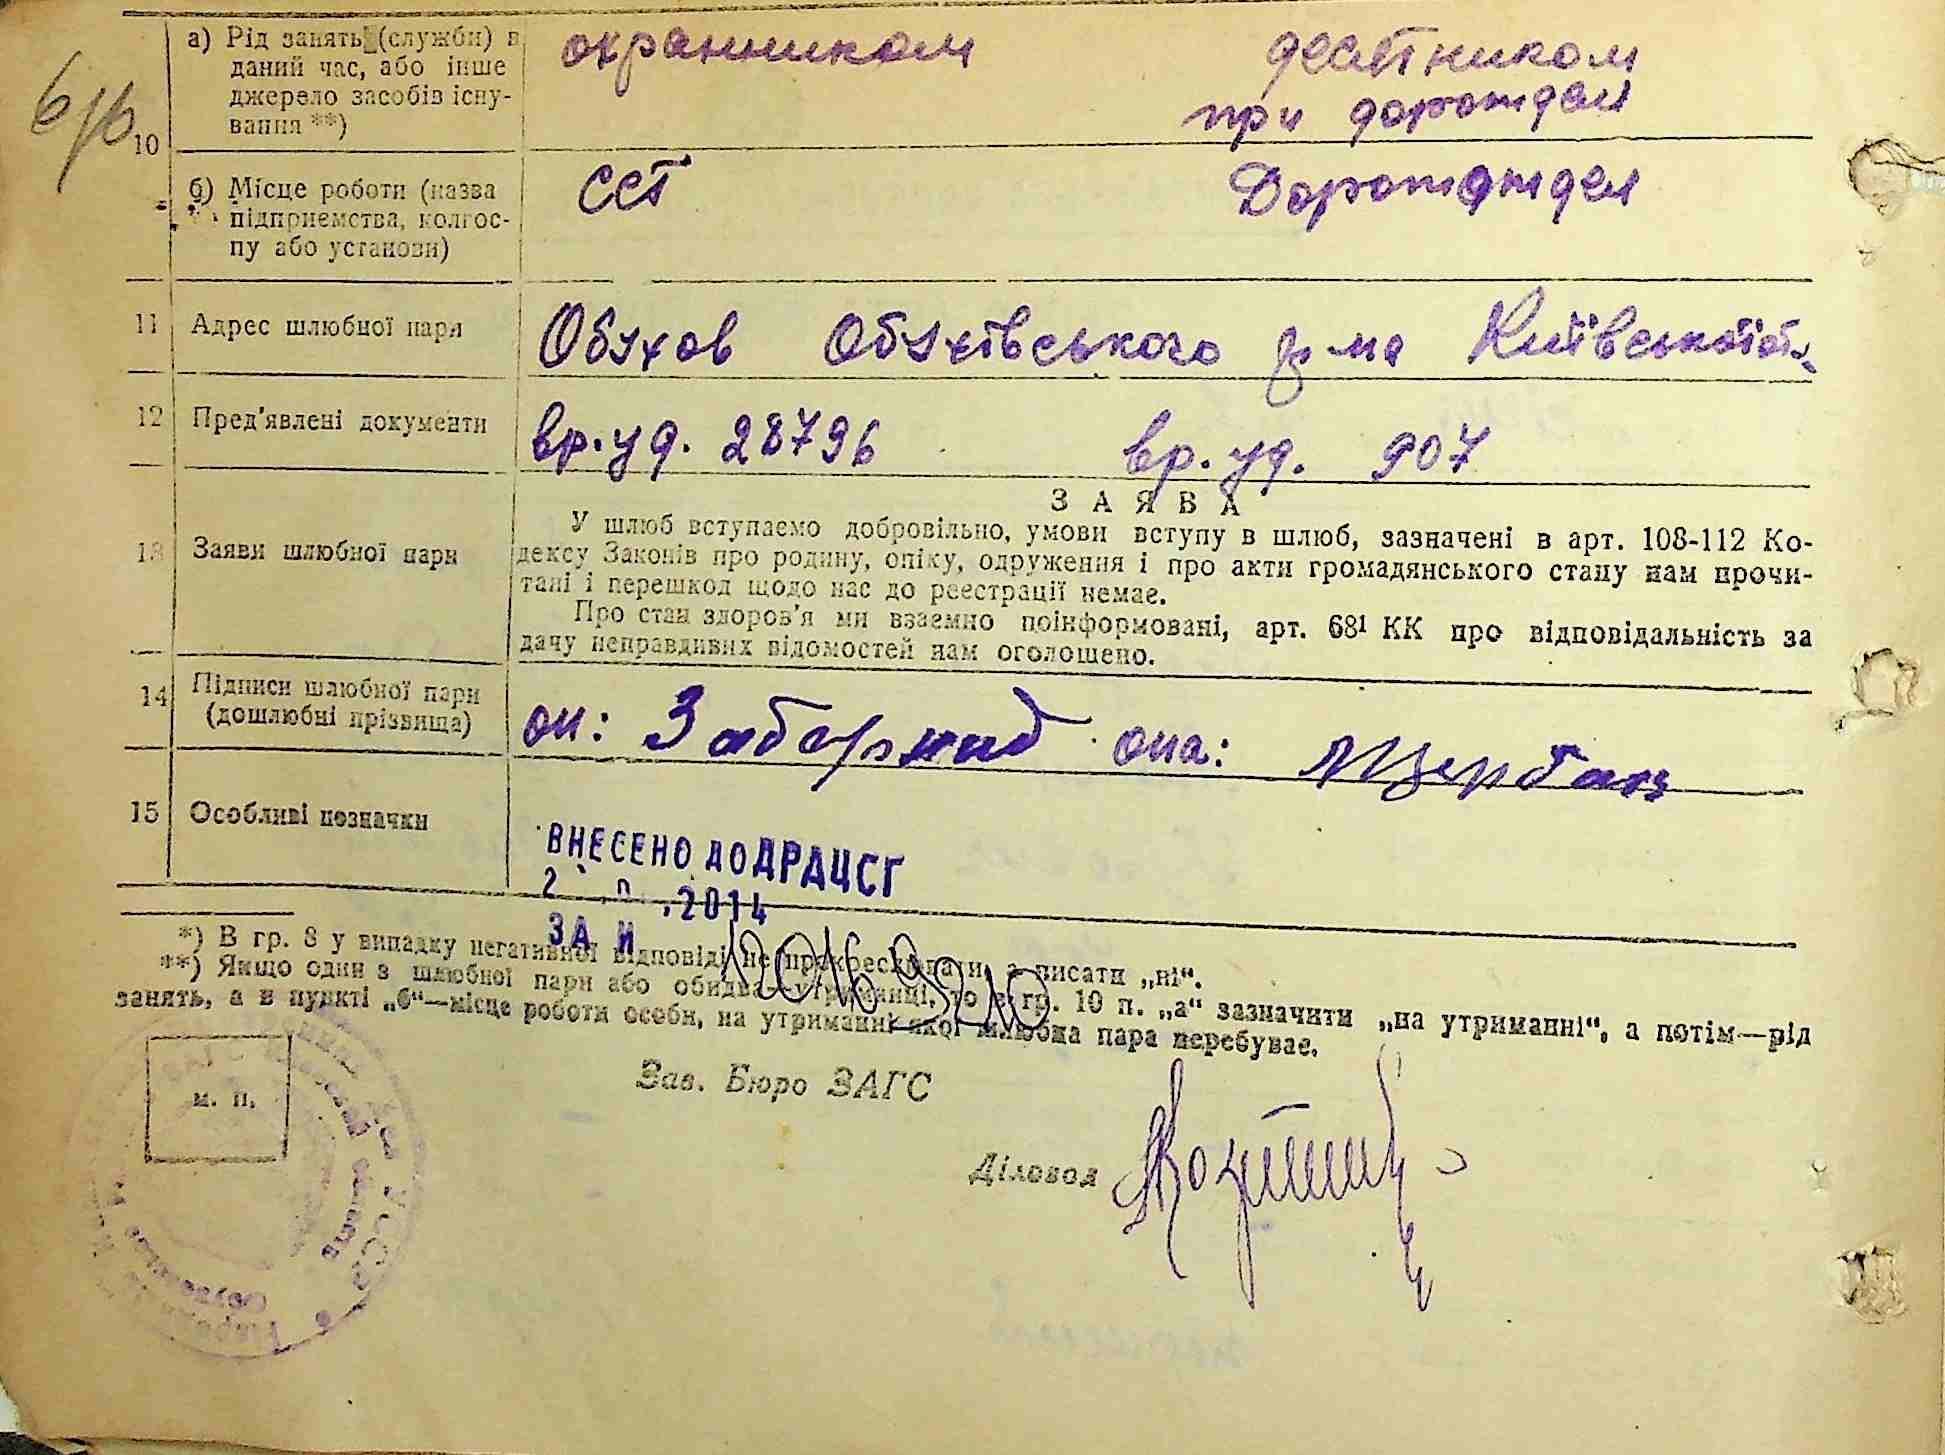 10
а) Рід занять (служби) в
даний час, або інше
джерело засобів існу-
вання **)
охранником
десятником
при дорождел
б) Місце роботи (назва
підприємства, колгос-
пу або установи)
ССТ
11 Адрес шлюбної пари
Обухов Обухівського р-на Київської
12 Пред'явлені документи
вр. уд. 28796 вр. уд. 907
ЗАЯВА
13 Заяви шлюбної пари
У шлюб вступаємо добровільно, умови вступу в шлюб, зазначені в арт. 108-112 Ко-
дексу Законів про родину, опіку, одруження і про акти громадянського стану нам прочи-
тані і перешкод щодо нас до реестрації немає.
Про стан здоров'я ми взаємно поінформовані, арт. 68¹ КК про відповідальність за
дачу неправдивих відомостей нам оголошено.
14 Підписи шлюбної пари
(дошлюбні прізвища)
он: она: Щербан
15 Особливі позначки
ВНЕСЕНО ДО ДРАЦСГ
2014
ЗА №
*) В гр. 8 у випадку негативної відповіді не прокреслювати, а писати „ні“.
**) Якщо один з шлюбної пари або обидва—утриманці, то в гр. 10 п. „а“ зазначити „на утриманні“, а потім—рід
занять, а в пункті „б“—місце роботи особи, на утриманні якої шлюбна пара перебуває.
м. п.
Зав. Бюро ЗАГС
Діловод